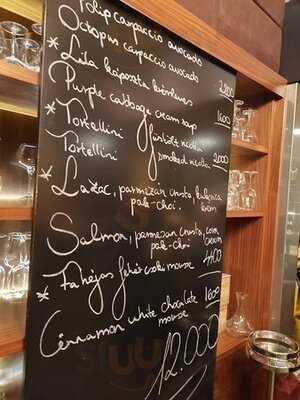 Polip carpaccio avocado
Octopus carpaccio avocado 2800
* Lila káposzta krémleves
Purple cabbage cream soup 1600
* Tortellini füstölt ricotta
Tortellini smoked ricotta 2000
* Lazac, parmezán crusta, kukorica
pak-choi. krém
Salmon, parmezan crusta, corn
pak-choi cream 4400
* Fahéjas fehér csoki mousse
Cinnamon white chocolate 1600
mousse
12.000